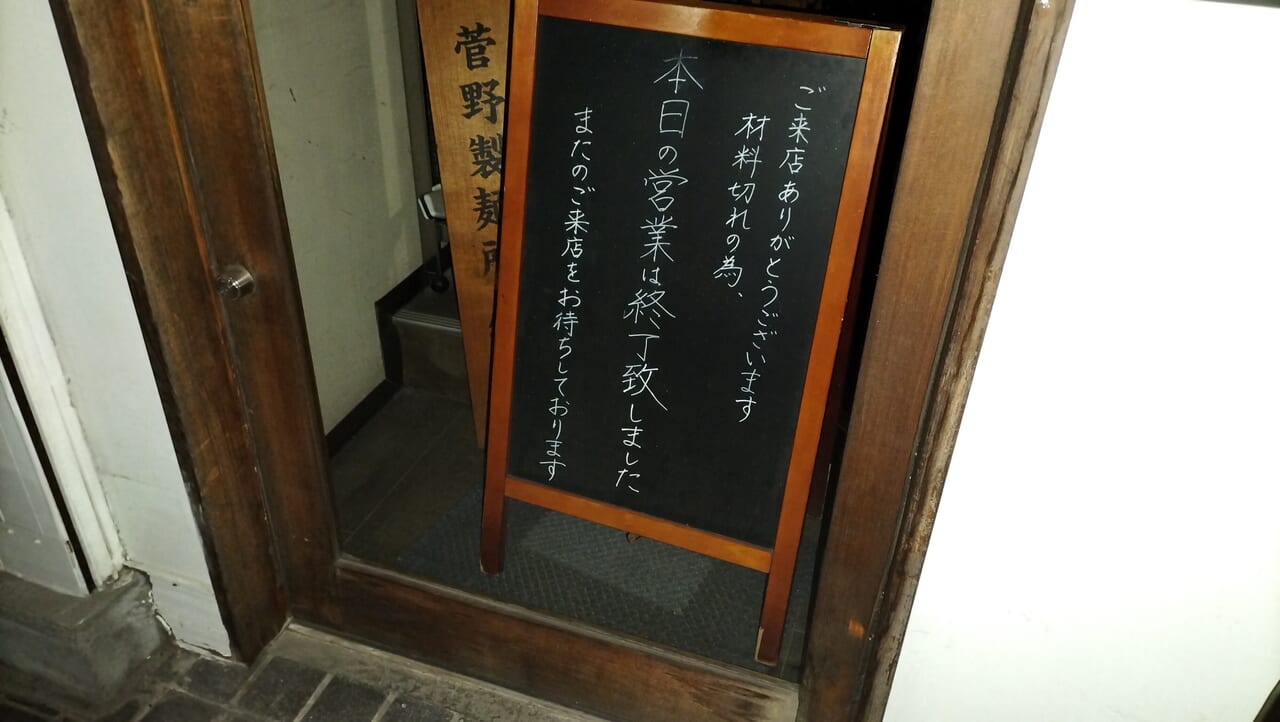 ご来店ありがとうございます
材料切れの為、
本日の営業は終了致しました
またのご来店をお待ちしております
菅野製麺所